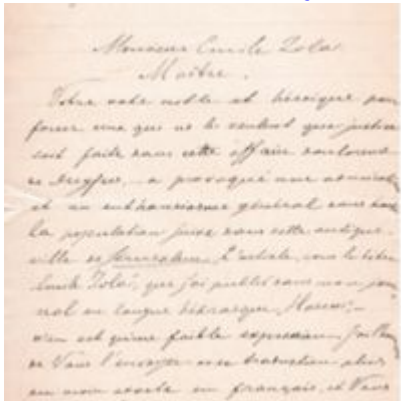 Monsieur Emile Zola
Maître.
Votre acte noble et héroïque pour
forcer ceux qui ne le veulent que justice
soit faite dans cette affaire
de Dreyfus, a provoqué une
et un enthousiasme général dans
la population juive dans cette antique
ville de Jérusalem. L'article, sous le titre
Emile Zola, que j'ai publié dans mon jour
nal en langue hébraïque,
n'en est qu'une faible expression. J'ai
de Vous l'envoyer avec traduction plus
ou moins exacte en français, et Vous